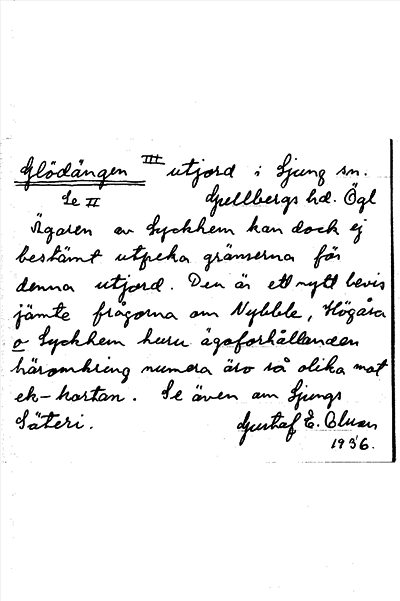 Glödängen III utjord i Ljung sn.
Se II Gullbergs hd. Ögl
Ägaren av Lyckhem kan dock ej
bestämt utpeka gränserna för
denna utjord. Den är ett nytt bevis
jämte frågorna om Nybble, Högåsa
o Lyckhem huru ägoförhållanden
häromkring numera äro så olika mot
ek-kartan. Se även om Ljungs
Säteri. Gustaf E.
1936.